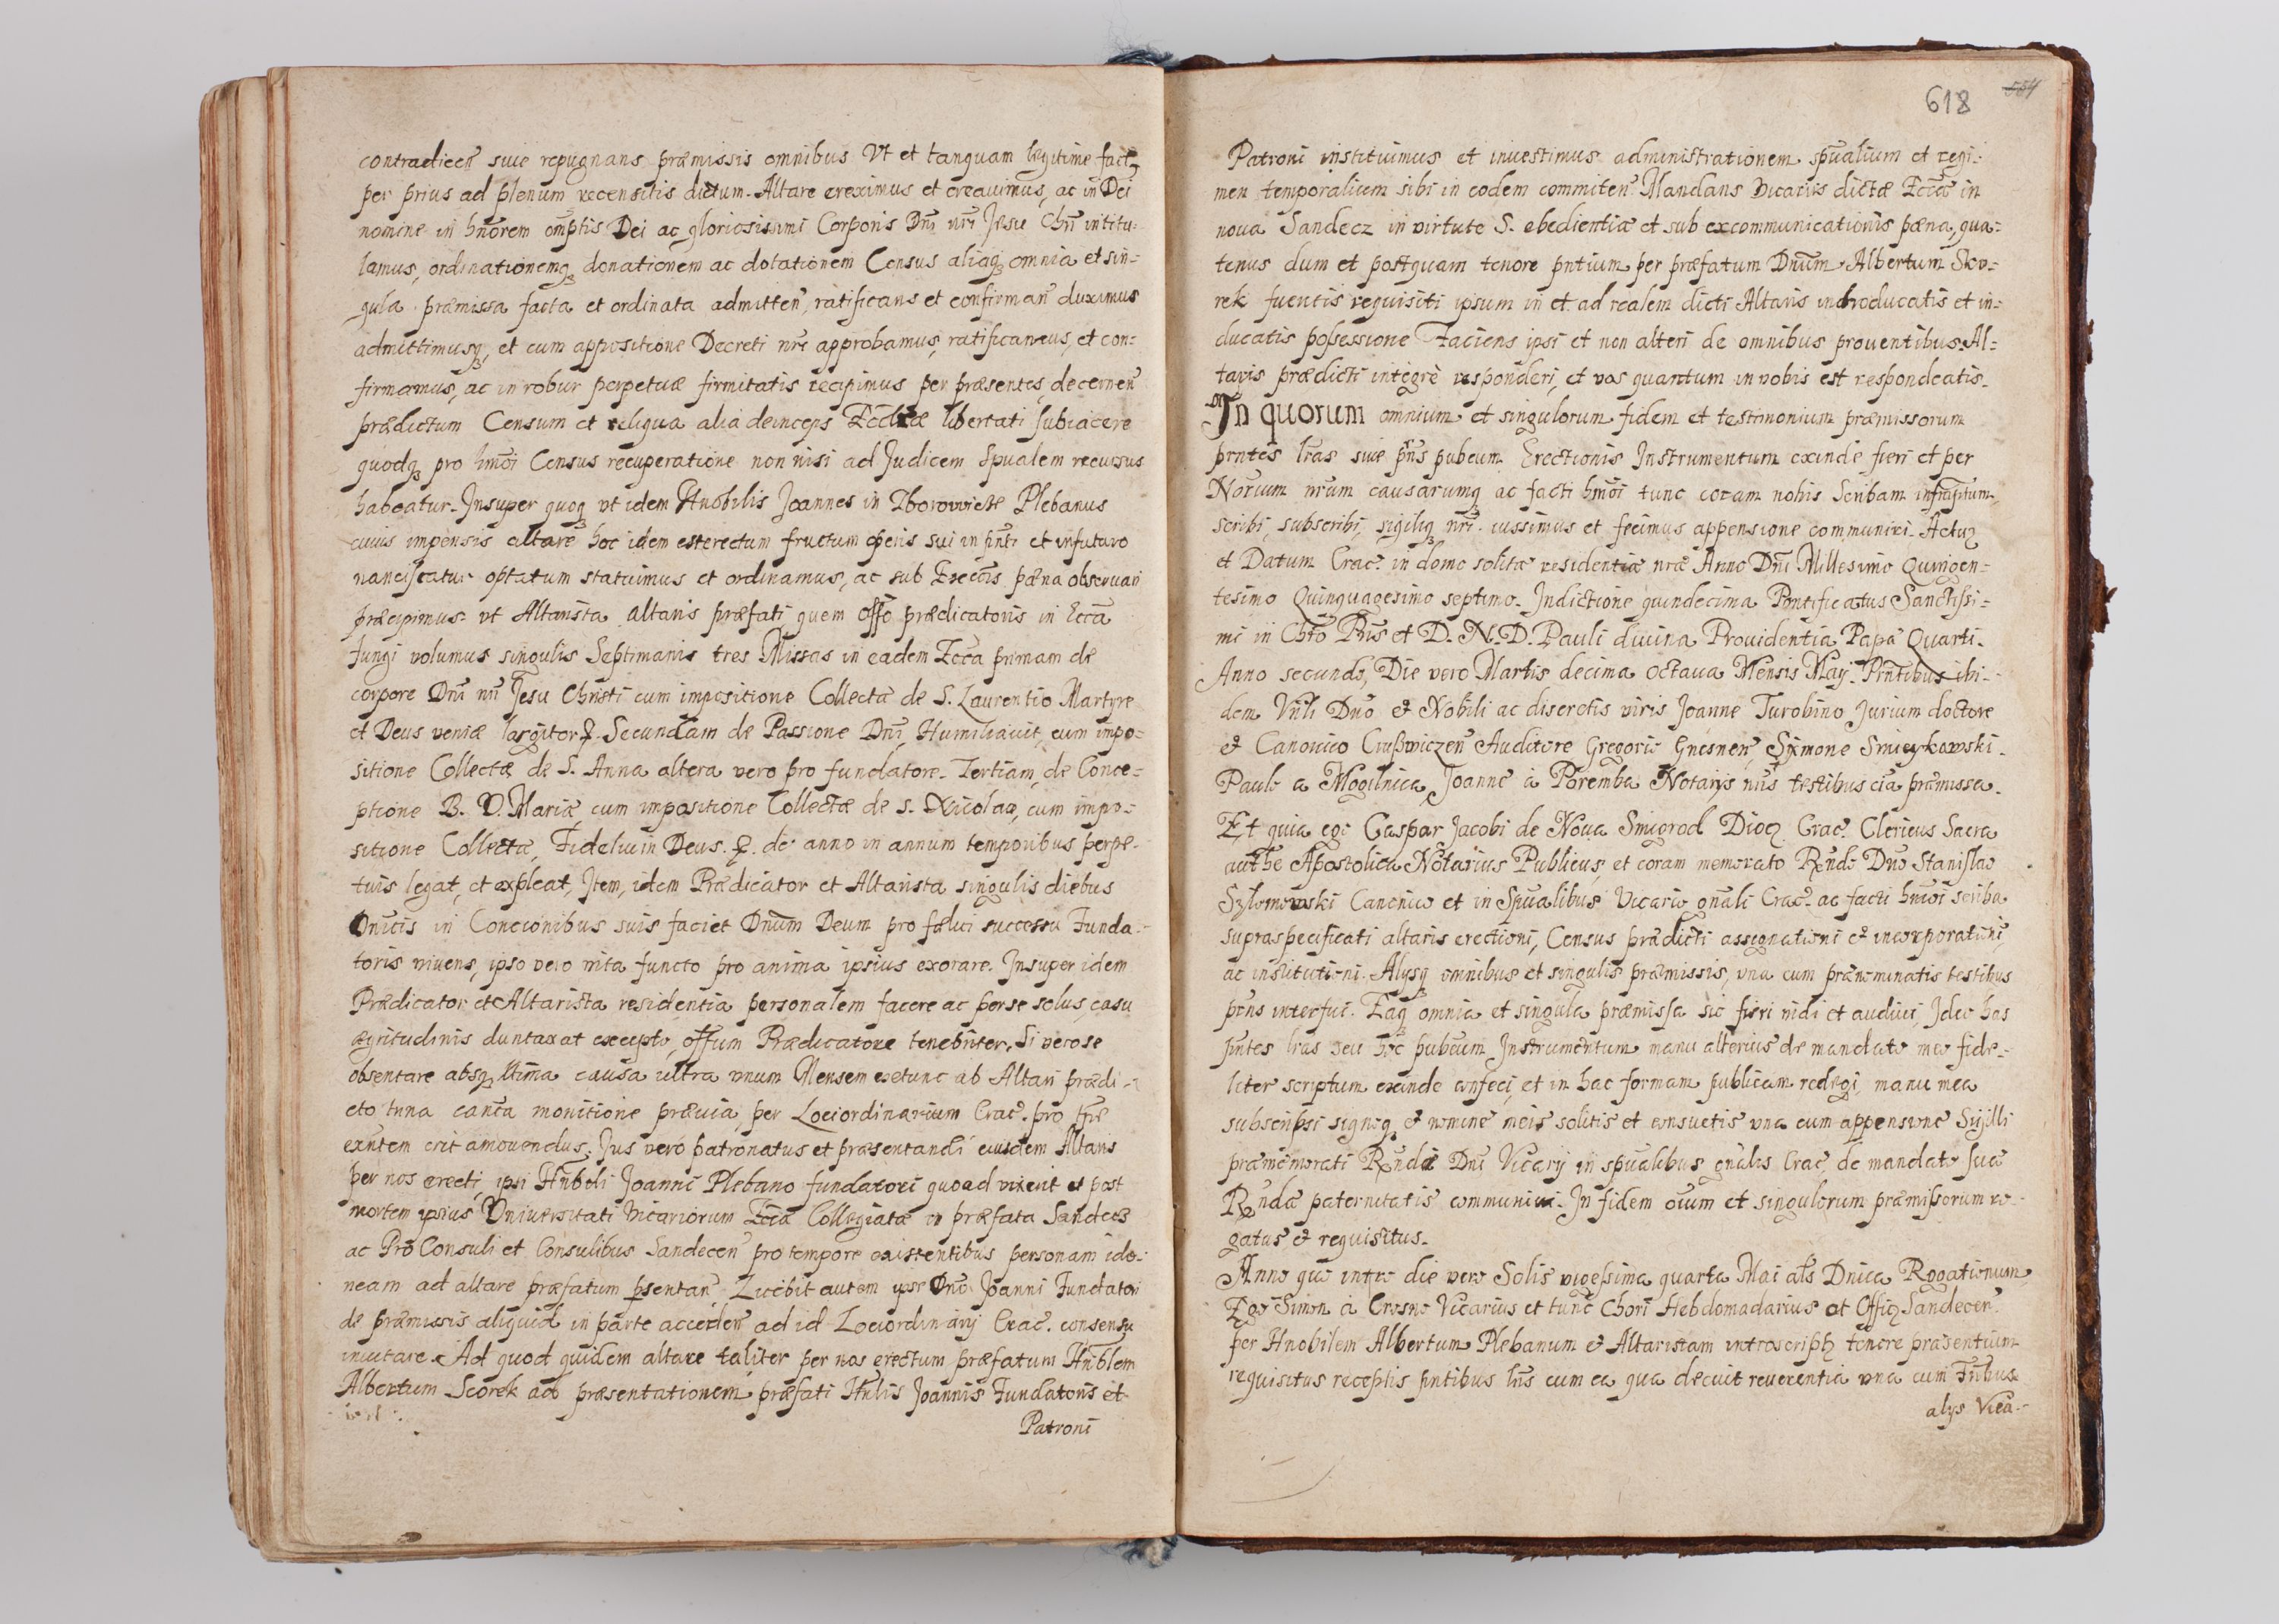 contradiceñ siue repugnans præmissis omnibus Vt et tanquam legitime factʒ
per prius ad plenum recensitis dictum Altare ereximus et creauimus, ac in Dei
nomine in hñorem omptis Dei ac gloriosissimi Corporis Dñi nři Jesu Chři intitu:
lamus, ordinationemqʒ donationem ac dotationem Census aliaqʒ omnia et sin=
gula præmissa facta et ordinata admitteñ, ratificans et confirmañ duximus
admittimusqʒ, et cum appositione Decreti nři approbamus, ratificamus, et con:
firmamus, ac in robur perpetuæ firmitatis recipimus per præsentes, decerneñ
prædictum Censum et reliqua alia deinceps Eccliæ libertati subiacere
quodqʒ pro hmõi Census recuperatione non nisi ad Judicem Spualem recursus
habeatur. Insuper quoqʒ vt idem Hnobilis Joannes in Zborowicze Plebanus
cuius impensis altare hoc idem est erectum fructum operis sui in pñti et in futuro
nanciscatur optatum statuimus et ordinamus, ac sub Execõis pæna obseruari
præcipimus vt Altarista altaris præfati quem offõ prædicatoris in Ecca
fungi volumus singulis Septimanis tres Missas in eadem Ecca primam de
corpore Dñi nři Jesu Christi cum impositione Collectæ de S. Laurentio Martyre
et Deus veniæ largitor &. Secundam de Passione Dñi, Humiliauit, cum impo=
sitione Collectæ de S. Anna altera vero pro fundatore. Tertiam, de Conce=
ptione B. V. Mariæ, cum impositione Collectæ de S. Nicolao, cum impo=
sitione Collectæ, Fidelium Deus. &. de anno in annum temporibus perpe=
tuis legat, et expleat, Item, idem Prædicator et Altarista singulis diebus
Dnicis in Concionibus suis faciet Dnūm Deum pro fælici successu Funda=
toris viuens, ipso vero vita functo pro anima ipsius exorare. Insuper idem
Prædicator et Altarista residentia personalem facere ac per se solus, casu
ægritudinis duntaxat excepto, offum Prædicatore tenebitur. Si vero se
absentare absqʒ ltima causa ultra vnum Mensem extunc ab Altari prædi=
cto trina canca monitione præuia, per Lociordinarium Crac. pro
exñtem erit amouendus. Jus vero patronatus et præsentandi eiusdem Altaris
per nos erecti, ipsi Hnbili Joanni Plebano fundatori quoad vixerit et post
mortem ipsius Vniuersitati Vicariorum Ecca Collegiatæ in præfata Sandecz
ac Pro Consuli et Consulibus Sandeceñ pro tempore existentibus personam ido=
neam ad altare præfatum psentañ Licebit autem ipse Dnõ Joanni Fundatori
de præmissis aliquid in parte accedeñ ad id Lociordinarij Crac. consensu
mutare. Ad quod quidem altare taliter per nos erectum præfatum Hñblem
Albertum Scorek ad præsentationem præfati Hnlis Joannis Fundatoris et
Patroni
618
554
Patroni instituimus et inuestimus administrationem spualium et regi=
men temporalium sibi in eodem commiteñ Mandans Vicariis dictæ Eccæ in
noua Sandecz in virtute S. obedientiæ et sub excommunicationis pæna, qua=
tenus dum et postquam tenore pntium per præfatum Dnum Albertum Sko=
rek fueritis requisiti ipsum in et ad realem dicti Altaris introducatis et in=
ducatis possessione Faciens ipsi et non alteri de omnibus prouentibus Al=
taris prædicti integrè responderi, et vos quantum in vobis est respondeatis.
In quorum omnium et singulorum fidem et testimonium præmissorum
prntes lřas siue pñs pubcum Erectionis Instrumentum exinde fieri et per
Norium nrum causarumqʒ ac facti hmõi tunc coram nobis Scribam infraptum,
scribi, subscribi, sigiliqʒ nři iussimus et fecimus appensione communiri. Actuʒ
et Datum Crac. in domo solitæ residentiæ nřæ Anno Dñi Millesimo Quingen=
tesimo Quinquagesimo septimo. Indictione quindecima Pontificatus Sanctissi=
mi in Chřo Pris et D. N. D. Pauli diuina Prouidentia Papæ Quarti.
Anno secundo, Die vero Martis decima octaua Mensis Maij. Prntibus ibi=
dem Vnli Dño & Nobili ac discretis viris Joanne Turobino Jurium doctore
& Canonico Crußwiczeñ Auditore Gregorio Gnesneñ, Symone Smieykowski.
Paulo a Mogilnica, Joanne à Poremba Notarijs nřis testibus cia præmissa.
Et quia ego Caspar Jacobi de Noua Smigrod Diocʒ Crac. Clericus Sacra
authe Apostolica Notarius Publicus, et coram memorato Rendo Dño Stanislao
Szlomowski Canonico et in Spualibus Vicario gnali Crac. ac facti hmõi scriba
supraspecificati altaris erectioni, Census prædicti assignationi & incorporationi
ac institutioni. Alysqʒ omnibus et singulis præmissis, vna cum prænominatis testibus
pñs interfui. Eaqʒ omnia et singula præmissa sic fieri vidi et audiui, Ideo has
pntes lřas seu hoc pubcum Instrumentum manu alterius de mandato meo fide=
liter scriptum exinde confeci, et in hac formam publicam redegi, manu mea
subscripsi signoqʒ & nomine meis solitis et consuetis vna cum appensione Sigilli
præmemorati Rendi Dñi Vicarij in spualibus gnalis Crac, de mandato suæ
Rendæ paternitatis communiui. In fidem oium et singulorum præmissorum ro=
gatus & requisitus.
Anno quo intro die vero Solis vigessima quarta Mai als Dnica Rogationum,
Ego Simon à Crosno Vicarius et tunc Chori Hebdomadarius et Officʒ Sandeceñ
per Hnobilem Albertum Plebanum & Altaristam introscriptʒ tenore præsentium
requisitus receptis pntibus lřis cum ea qua decuit reuerentia vna cum Fribus
alys Vica=